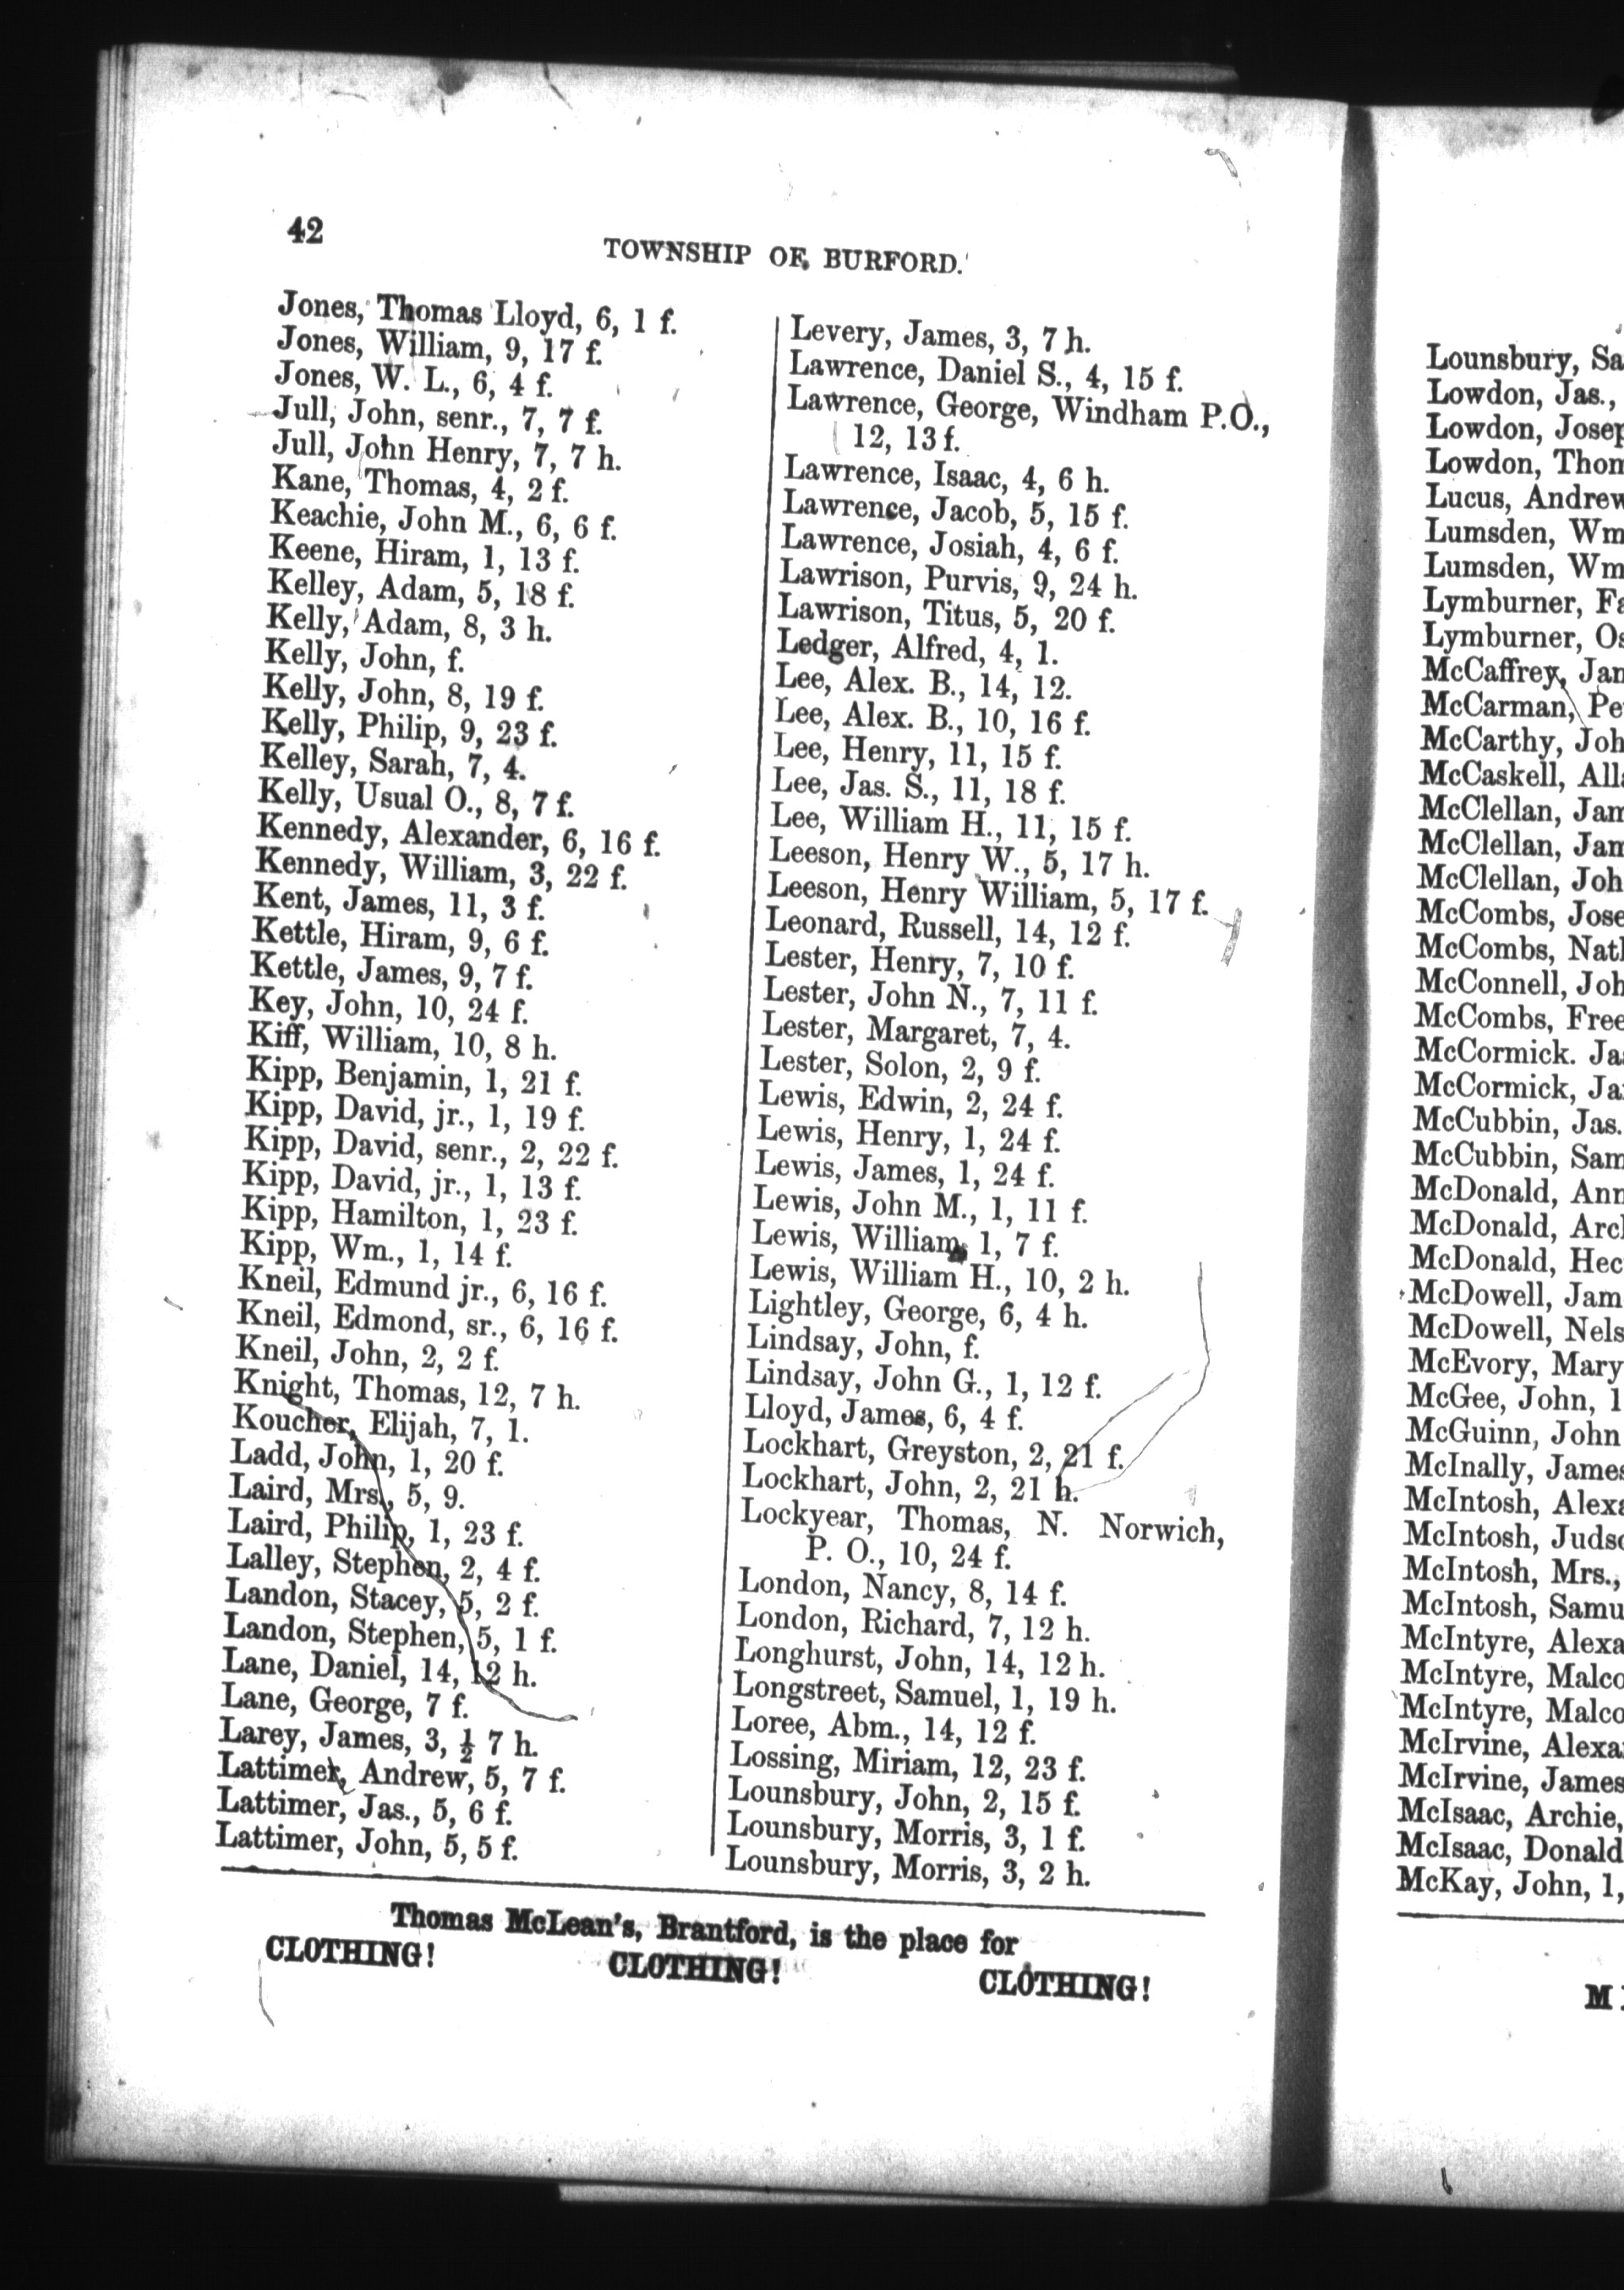 42
TOWNSHIP OF BURFORD.
Jones, Thomas Lloyd, 6, 1 f.
Jones, William, 9, 17 f.
Jones, W. L., 6, 4 f.
Jull, John, senr., 7, 7 f.
Jull, John Henry, 7, 7 h.
Kane, Thomas, 4, 2 f.
Keachie, John M., 6, 6 f.
Keene, Hiram, 1, 13 f.
Kelley, Adam, 5, 18 f.
Kelly, Adam, 8, 3 h.
Kelly, John, f.
Kelly, John, 8, 19 f.
Kelly, Philip, 9, 23 f.
Kelley, Sarah, 7, 4.
Kelly, Usual O., 8, 7 f.
Kennedy, Alexander, 6, 16 f.
Kennedy, William, 3, 22 f.
Kent, James, 11, 3 f.
Kettle, Hiram, 9, 6 f.
Kettle, James, 9, 7 f.
Key, John, 10, 24 f.
Kiff, William, 10, 8 h.
Kipp, Benjamin, 1, 21 f.
Kipp, David, jr., 1, 19 f.
Kipp, David, senr., 2, 22 f.
Kipp, David, jr., 1, 13 f.
Kipp, Hamilton, 1, 23 f.
Kipp, Wm., 1, 14 f.
Kneil, Edmund jr., 6, 16 f.
Kneil, Edmond, sr., 6, 16 f.
Kneil, John, 2, 2 f.
Knight, Thomas, 12, 7 h.
Koucher, Elijah, 7, 1.
Ladd, John, 1, 20 f.
Laird, Mrs., 5, 9.
Laird, Philip, 1, 23 f.
Lalley, Stephen, 2, 4 f.
Landon, Stacey, 5, 2 f.
Landon, Stephen, 5, 1 f.
Lane, Daniel, 14, 12 h.
Lane, George, 7 f.
Larey, James, 3, ½ 7 h.
Lattimer, Andrew, 5, 7 f.
Lattimer, Jas., 5, 6 f.
Lattimer, John, 5, 5 f.
Levery, James, 3, 7 h.
Lawrence, Daniel S., 4, 15 f.
Lawrence, George, Windham P.O.,
12, 13 f.
Lawrence, Isaac, 4, 6 h.
Lawrence, Jacob, 5, 15 f.
Lawrence, Josiah, 4, 6 f.
Lawrison, Purvis, 9, 24 h.
Lawrison, Titus, 5, 20 f.
Ledger, Alfred, 4, 1.
Lee, Alex. B., 14, 12.
Lee, Alex. B., 10, 16 f.
Lee, Henry, 11, 15 f.
Lee, Jas. S., 11, 18 f.
Lee, William H., 11, 15 f.
Leeson, Henry W., 5, 17 h.
Leeson, Henry William, 5, 17 f.
Leonard, Russell, 14, 12 f.
Lester, Henry, 7, 10 f.
Lester, John N., 7, 11 f.
Lester, Margaret, 7, 4.
Lester, Solon, 2, 9 f.
Lewis, Edwin, 2, 24 f.
Lewis, Henry, 1, 24 f.
Lewis, James, 1, 24 f.
Lewis, John M., 1, 11 f.
Lewis, William, 1, 7 f.
Lewis, William H., 10, 2 h.
Lightley, George, 6, 4 h.
Lindsay, John, f.
Lindsay, John G., 1, 12 f.
Lloyd, James, 6, 4 f.
Lockhart, Greyston, 2, 21 f.
Lockhart, John, 2, 21 h.
Lockyear, Thomas, N. Norwich,
P. O., 10, 24 f.
London, Nancy, 8, 14 f.
London, Richard, 7, 12 h.
Longhurst, John, 14, 12 h.
Longstreet, Samuel, 1, 19 h.
Loree, Abm., 14, 12 f.
Lossing, Miriam, 12, 23 f.
Lounsbury, John, 2, 15 f.
Lounsbury, Morris, 3, 1 f.
Lounsbury, Morris, 3, 2 h.
Thomas McLean's, Brantford, is the place for
CLOTHING! CLOTHING! CLOTHING!
Lounsbury, Sa
Lowdon, Jas.,
Lowdon, Josep
Lowdon, Thom
Lucus, Andrew
Lumsden, Wm
Lumsden, Wm
Lymburner, Fa
Lymburner, Os
McCaffrey, Jam
McCarman, Pe
McCarthy, Joh
McCaskell, Alla
McClellan, Jam
McClellan, Jam
McClellan, Joh
McCombs, Jose
McCombs, Nath
McConnell, Joh
McCombs, Free
McCormick. Ja
McCormick, Ja
McCubbin, Jas.
McCubbin, Sam
McDonald, Ann
McDonald, Arch
McDonald, Hec
McDowell, Jam
McDowell, Nels
McEvory, Mary
McGee, John, 1
McGuinn, John
McInally, James
McIntosh, Alexa
McIntosh, Judso
McIntosh, Mrs.,
McIntosh, Samu
McIntyre, Alexa
McIntyre, Malco
McIntyre, Malco
McIrvine, Alexa
McIrvine, James
McIsaac, Archie,
McIsaac, Donald
McKay, John, 1,
M